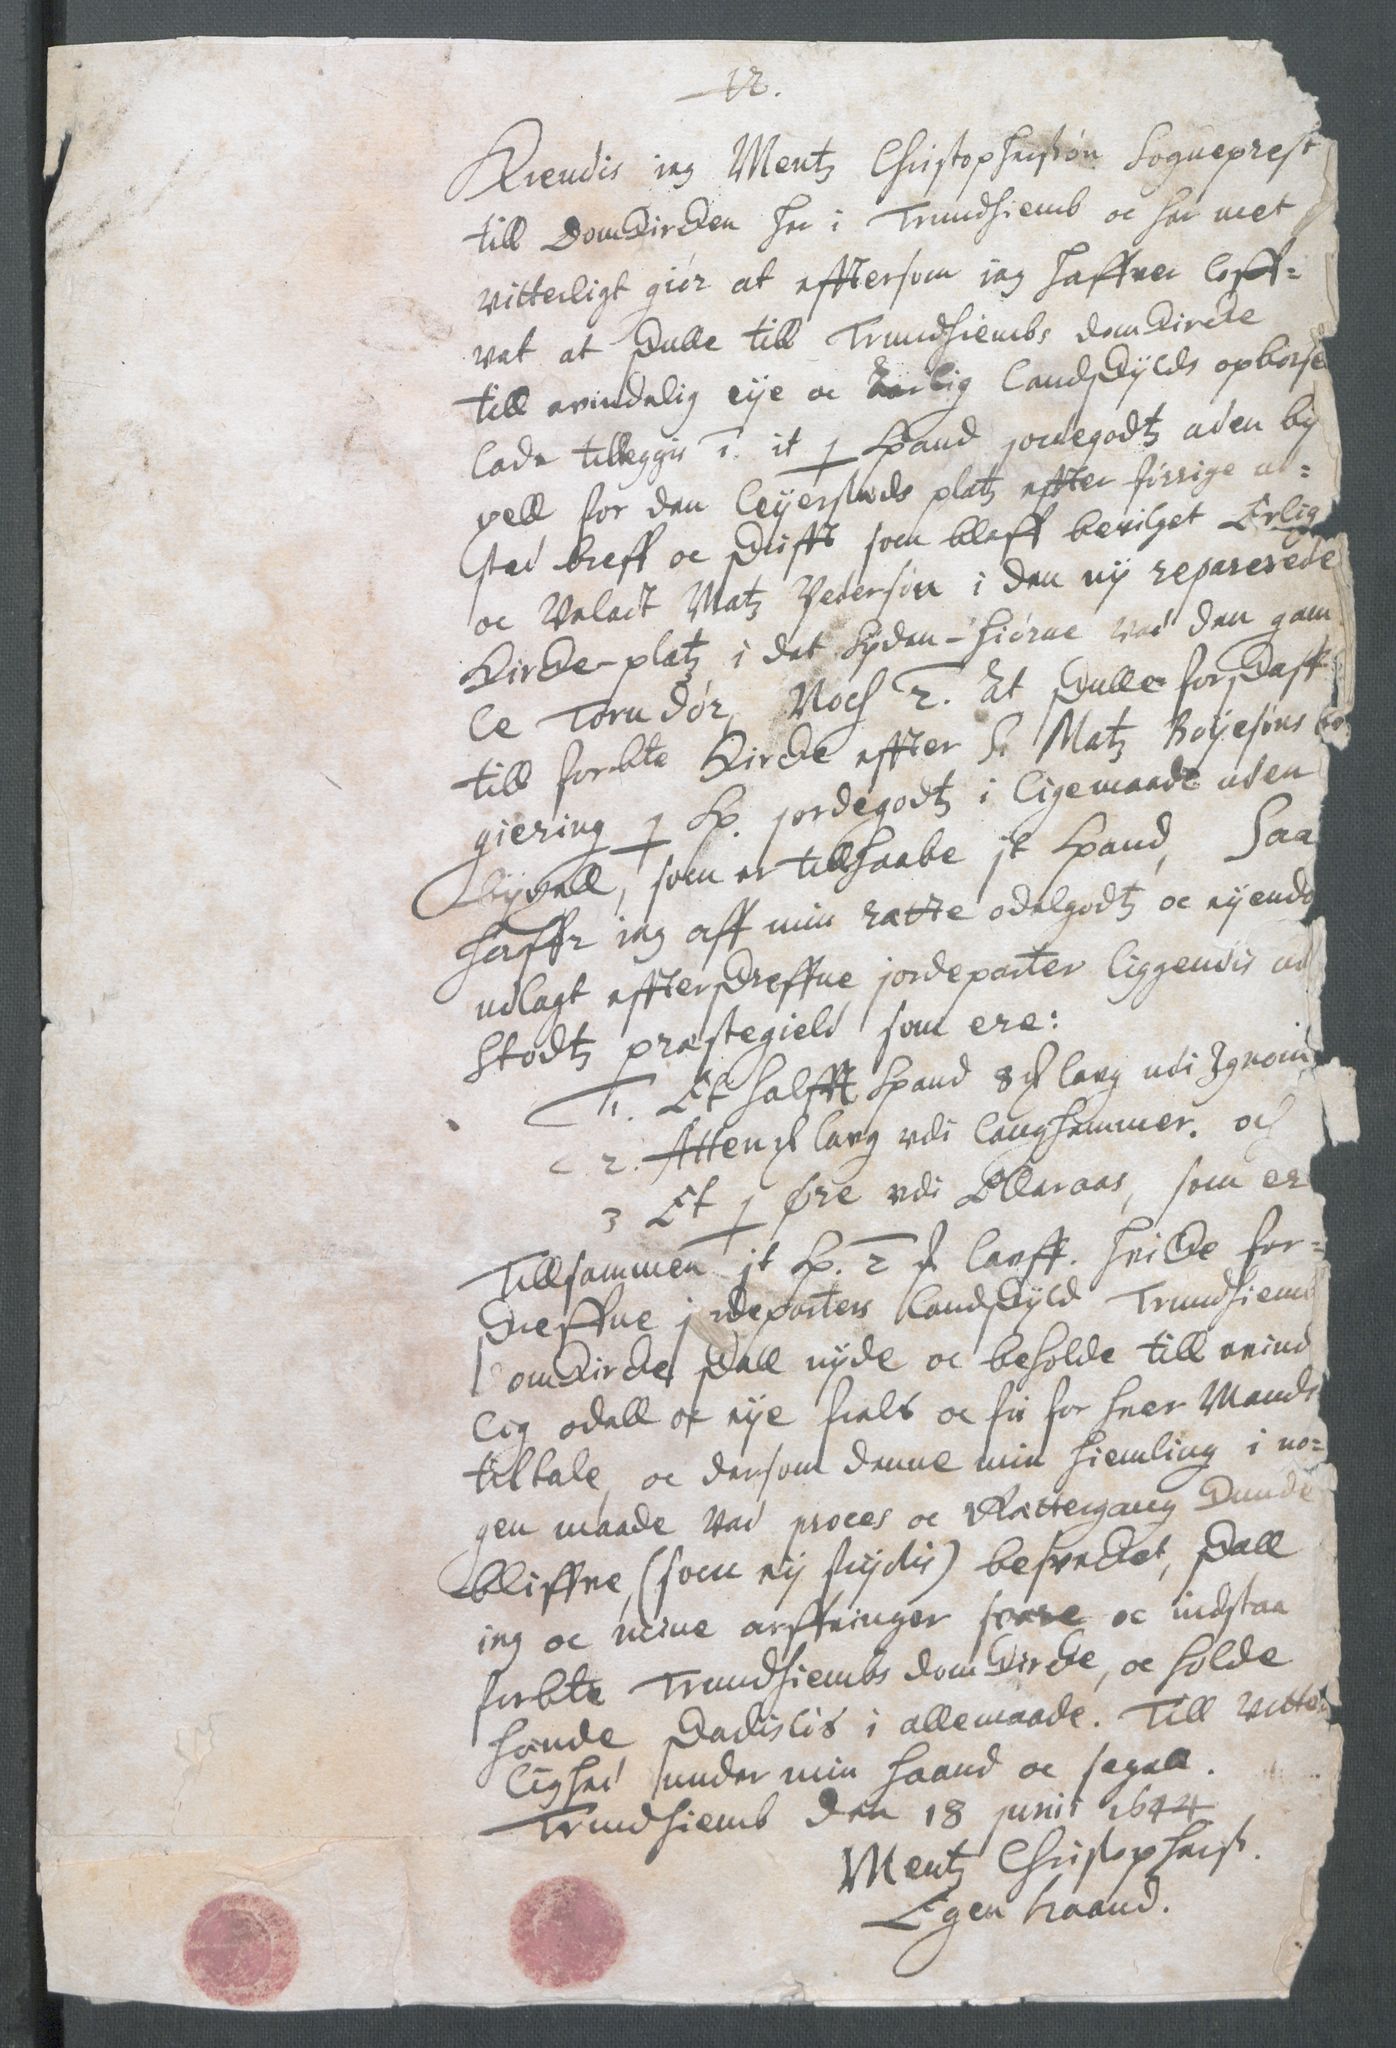 12.
Kiendis ieg Mentz Christophersøn Sogneprest
till Domkircken her i Trundhiemb oc her met
vitterligt giør at efftersom ieg haffver loff-
vet at skulle till Trundhiembs domkircke
till evindelig eije oc aarlig landskylds opbørsel
lade tilleggis 1. it ½ spand jordegodtz uden by
xell for den leyerstads platz effter førrige ud-
sted breff oc skrifft som bleff bevilget Erlig
oc Velact Matz Pedersøn i den nÿ reparerede
Kircke-platz i det Synden-hiørne ved den gam
le Torn dør, Noch 2. At skulle forskaffe
till forbte Kircke effter S. Matz Boyesøns be
giering ½ Sp. jordegodtz i ligemaade uden
byxell, som er tillhaabe jt Spand, Saa
haffr ieg aff min rætte odelgodtz oc eyendo
udlagt effterskreffne jordeparter liggendis ud
Stodtz præstegield som ere:
1. Et halfft Spand 8 ℳ laug udi
2. Atten ℳ laug vdi Langhammer. och
3 Et ½ Øre vdi Elleraas, som er
Tillsammen jt Sp. 2 ℳ lauff. hvicke for-
skreffne jordeparters landskyld Trundhiemb
Domkircke skall nyde oc beholde till evind
lig odell oc eije frels oc fri for hver Mands
tiltale, oc dersom denne min hiemling i no-
gen maade ved proces oc Rættergang kunde
bliffve, (som eij frijctis) besvecket, skall
ieg oc mine arffvinger svare oc indstaa
forbte Trundhiembs domkircke, oc holde
hende skadisløs i allemaade. Till Vitter
lighed under min haand oc segell.
Trundhiemb den 18 junii 1644
Mentz Christophersøn.
Egen haand.